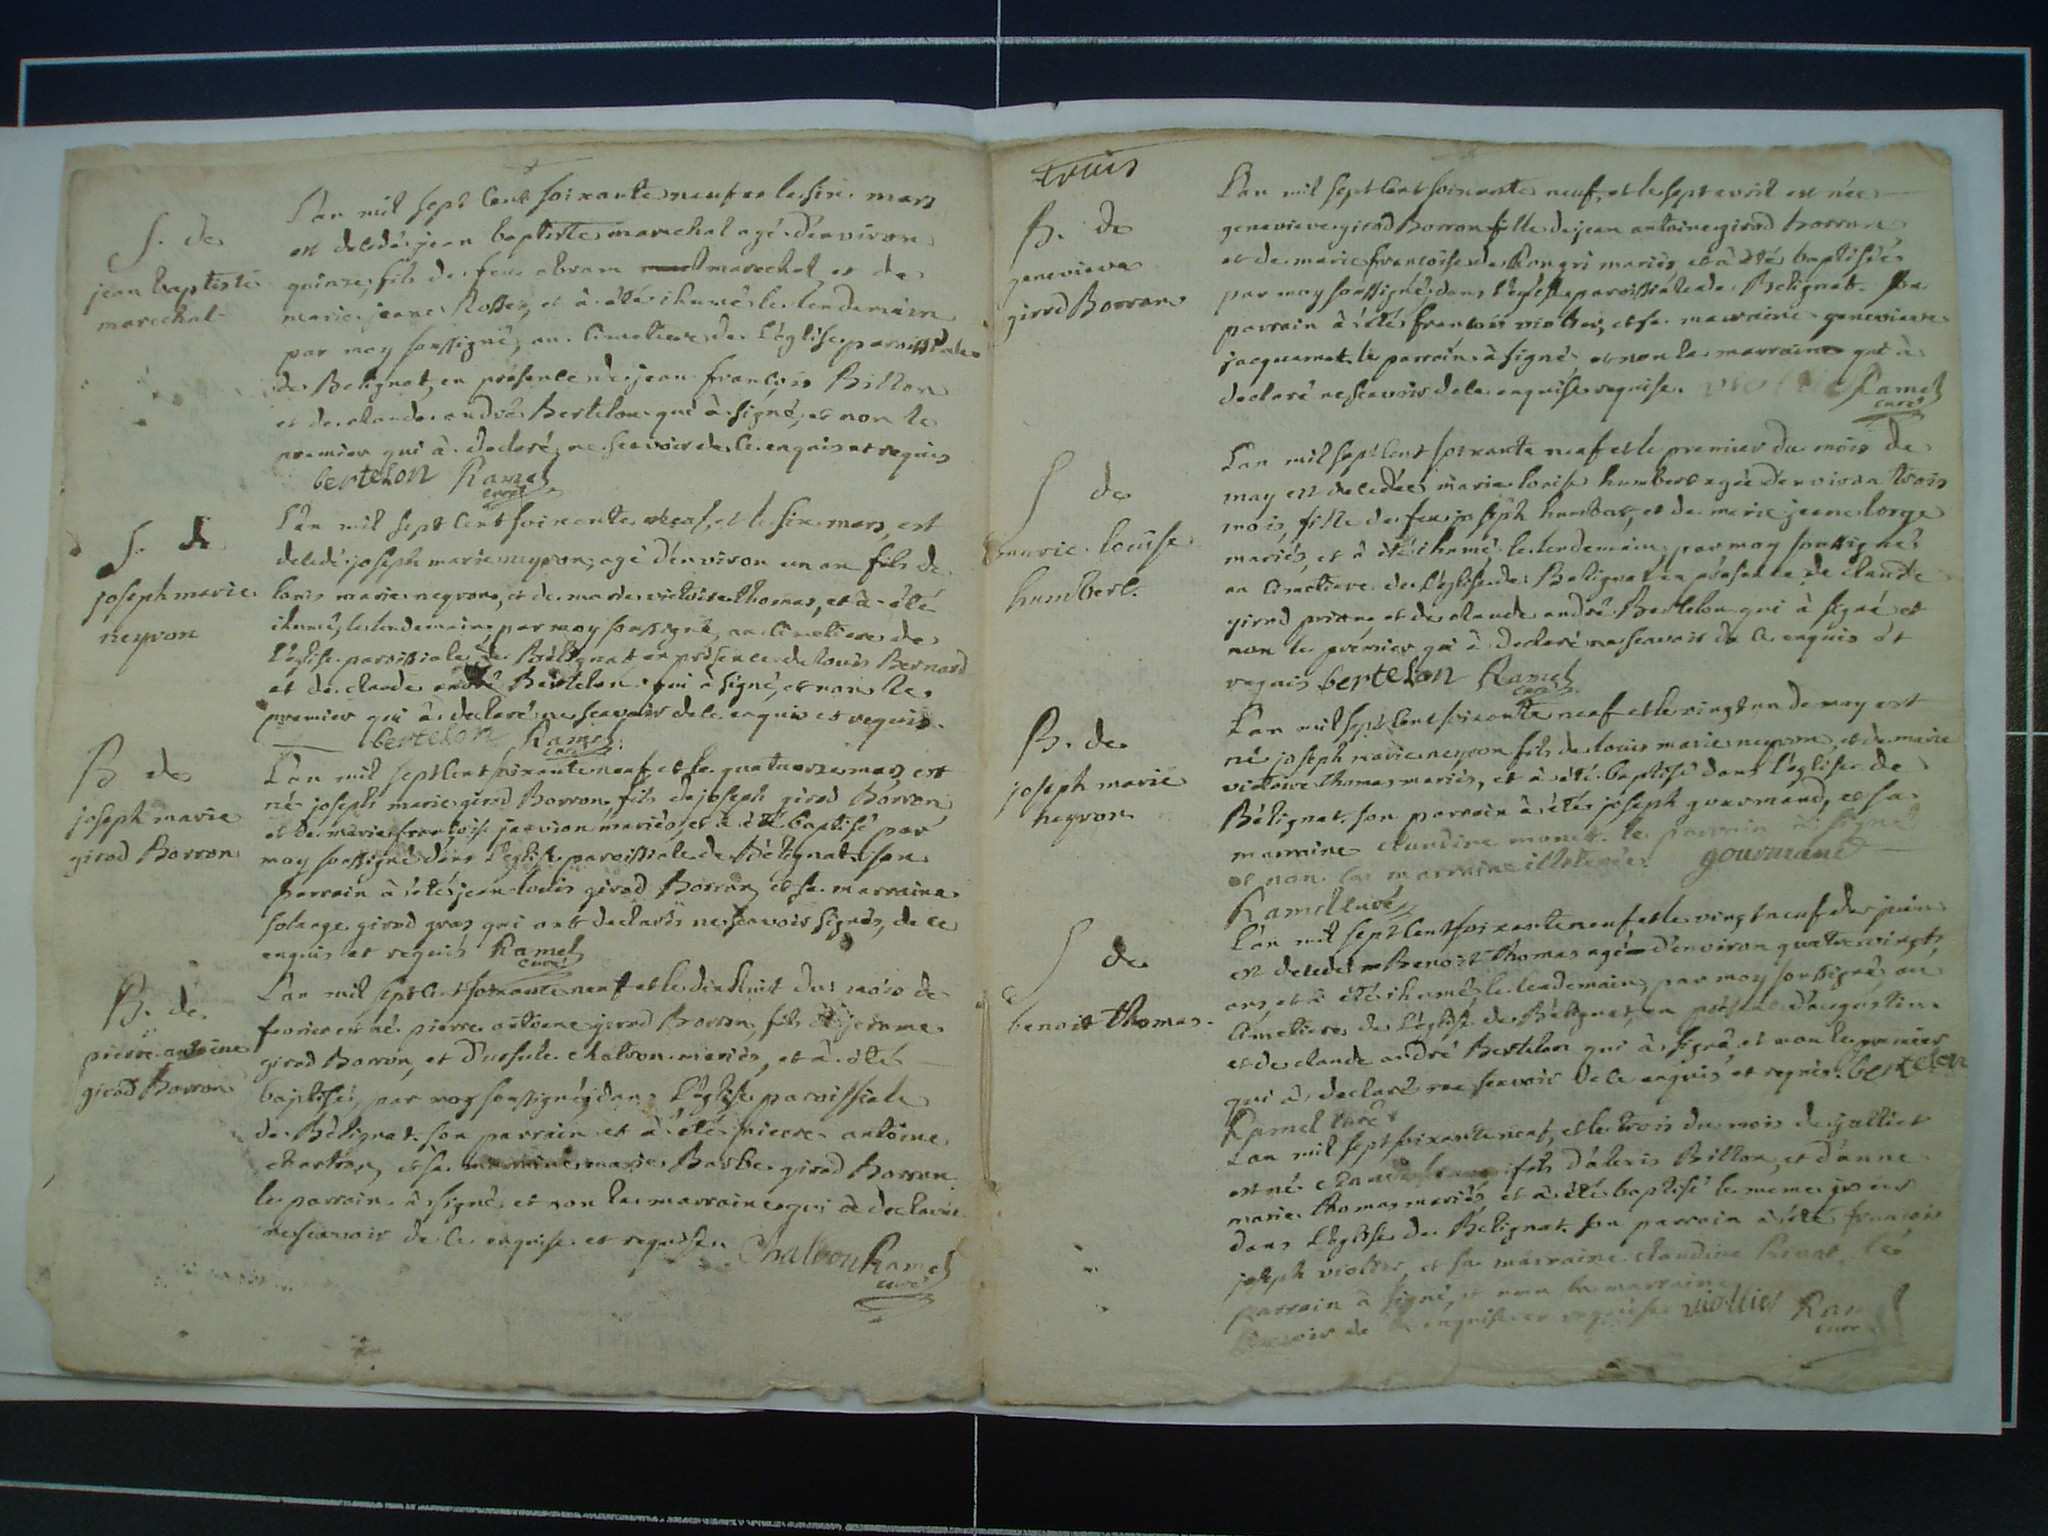 S. de
jean baptiste
marechal
L'an mil sept cent soixante neuf et le six mars
est decedé jean baptiste marechal agé d'environ
quinze, fils de feu abram marechal et de
marie jeane Rosset, et à été ihumé le lendemain
par moy soussigné, au cimetiere de l'église paroissiale
de Belignat, en présence de jean françois Billon
et de claude andré Bertelon qui à signé, et non le
premier qui à declaré ne scavoir de ce enquis et requis
bertelon Ramel
curé
S. de
joseph marie
neyron
L'an mil sept cent soixante neuf, et le six mars, est
decedé joseph marie neyron, agé d'environ un an fils de
louis marie neyron, et de marie victoire thomas, et à été
ihumé, le lendemain par moy soussigné, au cimetiere de
l'église paroissiale de Bélignat en présence de louis Bernard
et de claude andré Bertelon qui à signé, et non le
premier qui à declaré ne scavoir de ce enquis et requis.
bertelon Ramel
curé
B de
joseph marie
girod Borron
L'an mil sept cent soixante neuf et le quatorze mars, est
né joseph marie girod Borron, fils de joseph girod Borron
et de marie françoise janvion mariés, et à été baptisé par
moy soussigné dans l'église paroissiale de Bélignat son
parrain à été jean louis girod Borron, et sa marraine
solange girod gros, qui ont declarés ne scavoir signés, de ce
enquis et requis Ramel
curé
B. de
pierre antoine
girod Borron
L'an mil sept cent soixante neuf et le dix huit du mois de
fevrier est né pierre antoine girod Borron, fils de jerome
girod Borron, et d'ursule chalvon mariés, et à été
baptisé, par moy soussigné, dans l'église paroissiale
de Bélignat. son parrain et à été pierre antoine
et sa marraine marie Barbe girod Borron
le parrain à signé et non la marraine qui à declarée
ne scavoir de ce enquise et requise. Chalvon Ramel
curé
trois
B. de
genevieve
girod Borron
L'an mil sept cent soixante neuf, et le sept avril est née
genevieve girod Borron fille de jean antoine girod borron
et de marie françoise de mariés, et à été baptisée
par moy soussigné, dans l'église paroissiale de Belignat. son
parrain à été françois viollet, et sa marraine genevieve
jacquemet le parrain à signé, et non la marraine qui à
declaré ne scavoir de ce enquise requise. Ramel
curé
S de
marie louise
humbert.
L'an mil sept cent soixante neuf et le premier du mois de
may est decedée marie louise humbert agée d'environ trois
mois, fille de feu joseph humbert, et de marie jeane lorge
mariés, et à été ihumé le lendemain, par moy soussigné
au cimetiere de l'église de Belignat en présence de claude
girod et de claude andré Bertelon qui à signé et
non le premier qui à declaré ne scavoir de ce enquis et
requis bertelon Ramel
curé
B. de
joseph marie
neyron
L'an mil sept cent soixante neuf et le vingt un de may est
né joseph marie neyron fils de louis marie neyron, et de marie
victoire thomas mariés, et à été baptisé dans l'église de
Bélignat. son parrain à été joseph gourmand, et sa
marraine claudine monet. le parrain à signé
et non la marraine illeterée. gourmand
Ramel curé
S de
benoit thomas
L'an mil sept cent soixante neuf et le vingt neuf de juin
est decedé Benoit thomas agé d'environ quatre vingts
ans, et à été ihumé, le lendemain, par moy soussigné, au
cimetiere de l'église de Bélignat, en présence d'augustin
et de claude andré Bertelon qui à signé et non le premier
qui à declaré ne scavoir de ce enquis et requis. bertelon
Ramel curé
L'an mil sept soixante neuf, et le trois du mois de juillet
est né fils d'alexis Billon, et d'anne
marie thomas mariés, et à été baptisé le meme jour
dans l'église de Bélignat. son parrain à été françois
joseph viollet, et sa marraine claudine le
parrain à signé, et non la marraine
scavoir de ce enquise et requise viollet Ramel
curé